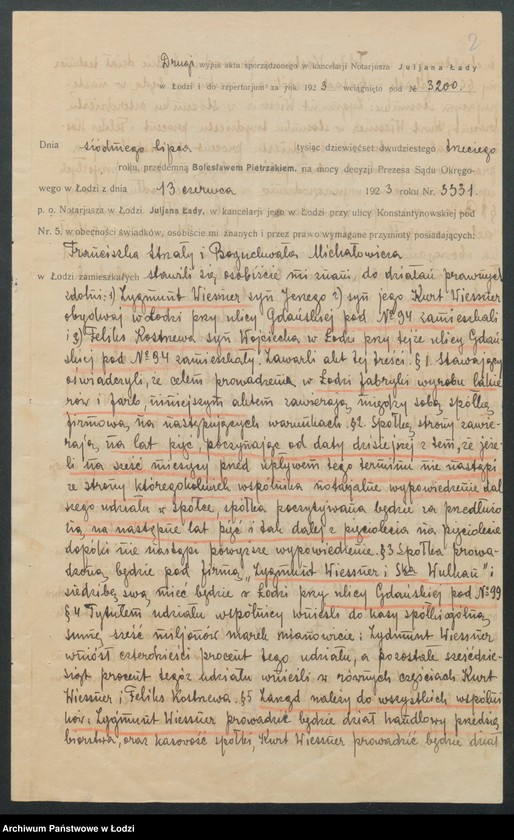 2
Drugi wypis aktu sporządzonego w kancelarji Notarjusza Juljana Łady
w Łodzi i do repertorjum za rok 1923 wciągnięto pod № 3200.
Dnia siódmego lipca tysiąc dziewięćset dwudziestego trzeciego
roku, przedemną Bolesławem Pietrzakiem, na mocy decyzji Prezesa Sądu Okręgo-
wego w Łodzi z dnia 13 czerwca 1923 roku Nr. 5531.
p. o. Notarjusza w Łodzi, Juljana Łady, w kancelarji jego w Łodzi przy ulicy Konstantynowskiej pod
Nr. 5. w obecności świadków, osobiście mi znanych i przez prawo wymagane przymioty posiadających:
Franciszka Strzały i Boguchwała Michałowicza
w Łodzi zamieszkałych stawili się osobiście mi znani, do działań prawnych
zdolni: 1) Zygmunt Wiessner syn Jerzego 2) syn jego Kurt Wiessner
obydwaj w Łodzi przy ulicy Gdańskiej pod № 94 zamieszkali
i 3) Feliks Kostnewa syn Wojciecha w Łodzi przy tejże ulicy Gdań-
skiej pod № 94 zamieszkały. Zawarli akt tej treści: § 1. Stawający
oświadczyli, że celem prowadzenia w Łodzi fabryki wyrobu lakie
rów i farb, niniejszym aktem zawierają między sobą spółkę
firmową, na następujących warunkach. §2. Spółkę, strony zawie-
rają, na lat pięć, poczynając od daty dzisiejszej z tem, że jeże-
li na sześć miesięcy przed upływem tego terminu nie nastąpi
ze strony któregokolwiek wspólnika notarjalne wypowiedzenie dal
szego udziału w spółce, spółka poczytywana będzie za przedłużo
ną na następne lat pięć i tak dalej z pięciolecia na pięciolecie
dopóki nie nastąpi powyższe wypowiedzenie. §3 Spółka prowa-
dzoną będzie pod firmą „Zygmunt Wiessner i Ska Wulkan” i
siedzibę swą mieć będzie w Łodzi przy ulicy Gdańskiej pod № 99
§ 4 Tytułem udziału wspólnicy wnieśli do kasy spółki ogólną
sumę sześć miljonów marek mianowicie: Zygmunt Wiessner
wniósł czterdzieści procent tego udziału, a pozostałe sześćdzie-
siąt procent tegoż udziału wnieśli w równych częściach Kurt
Wiessner i Feliks Kostnewa. §5 Zarząd należy do wszystkich wspólni
ków: Zygmunt Wiessner prowadzić będzie dział handlowy przedsię
biorstwa, oraz kasowość spółki, Kurt Wiessner prowadzić będzie dział
Archiwum Państwowe w Łodzi